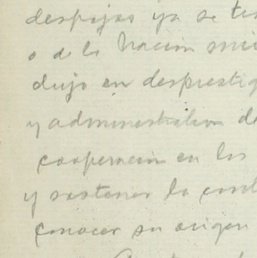 despojos ya se
o de la Nación
dujo en desprestig
y administrativa de
cooperación en los
y sostener la
conocer su origen